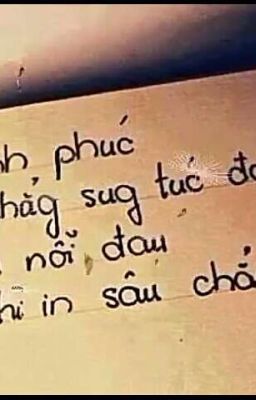 nh phúc
hẳg sug túc đ
nỗi đau
hi in sâu chẳ